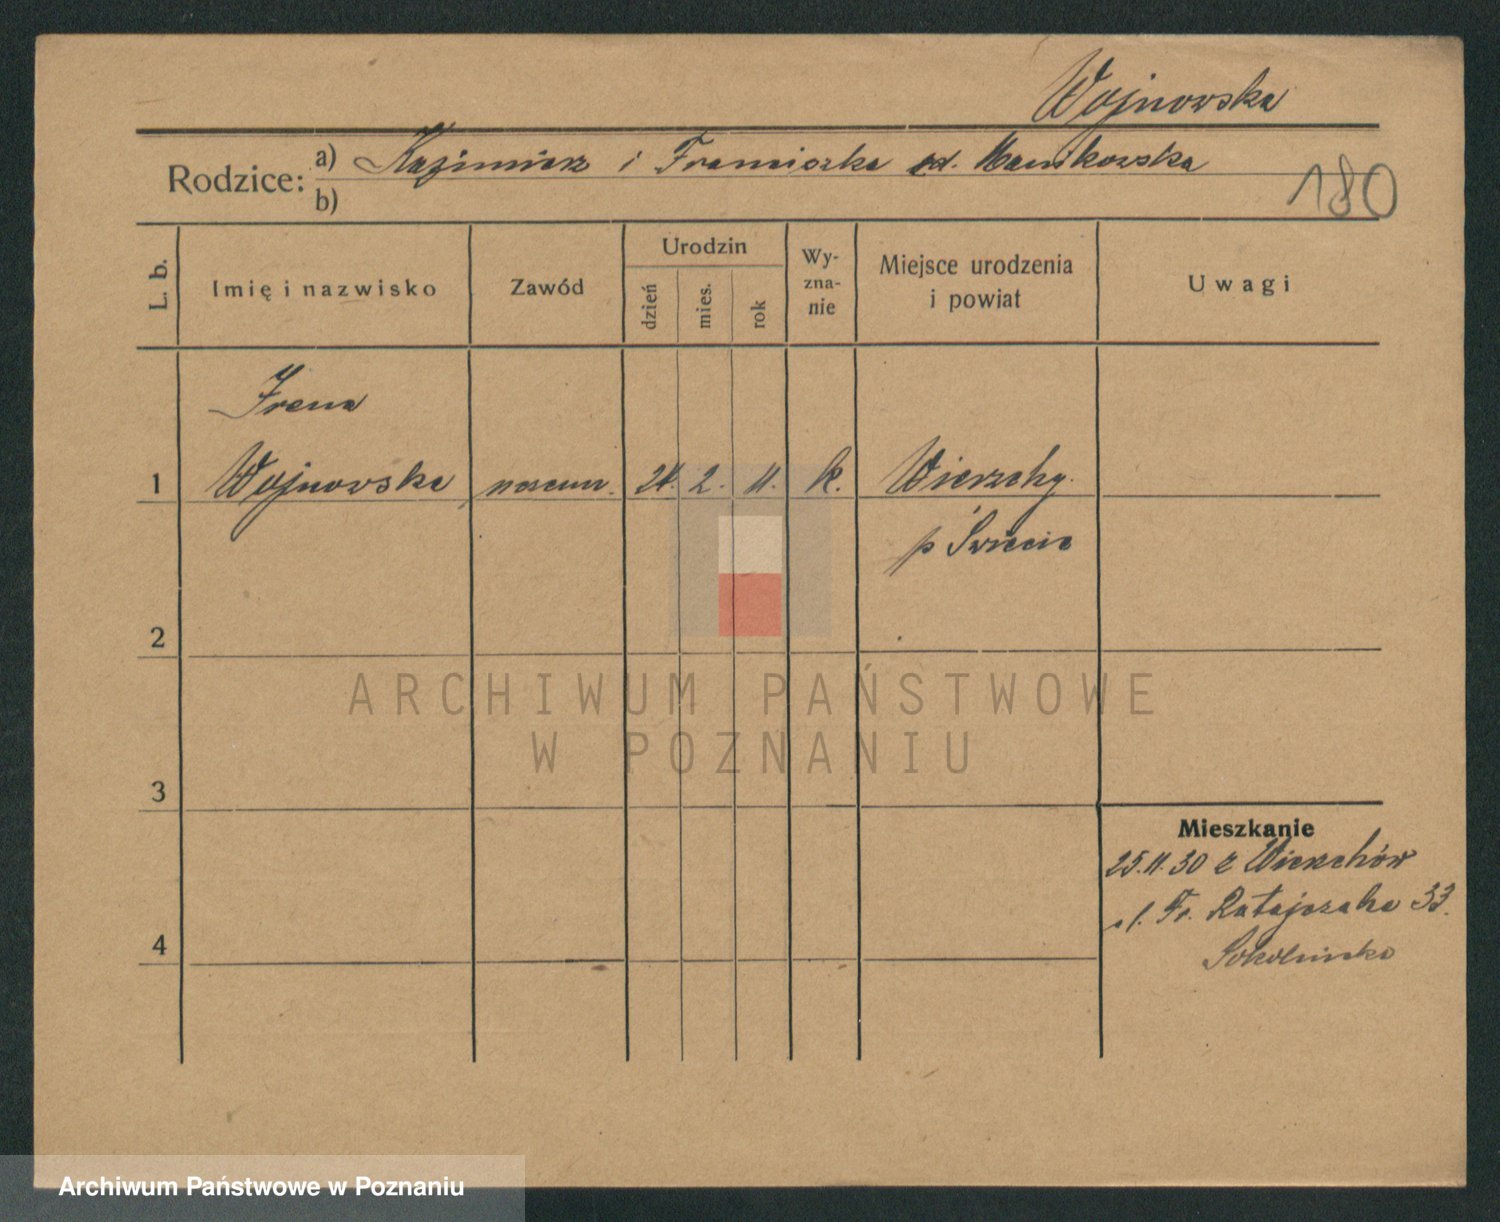 Wojnowska
Rodzice: a) Kazimierz i Franciszka zd. Mankowska
b)
180
L. b. Imię i nazwisko Zawód Urodzin dzień mies. rok Wyznanie Miejsce urodzenia i powiat Uwagi
Irena
1 Wojnowska 21. 2. 11. k. Wierzchy
p Świecie
2
ARCHIWUM PAŃSTWOWE
W POZNANIU
3
Mieszkanie
25.11.30 z Wierzchów
Fr. Ratajczaka 33.
4
Archiwum Państwowe w Poznaniu